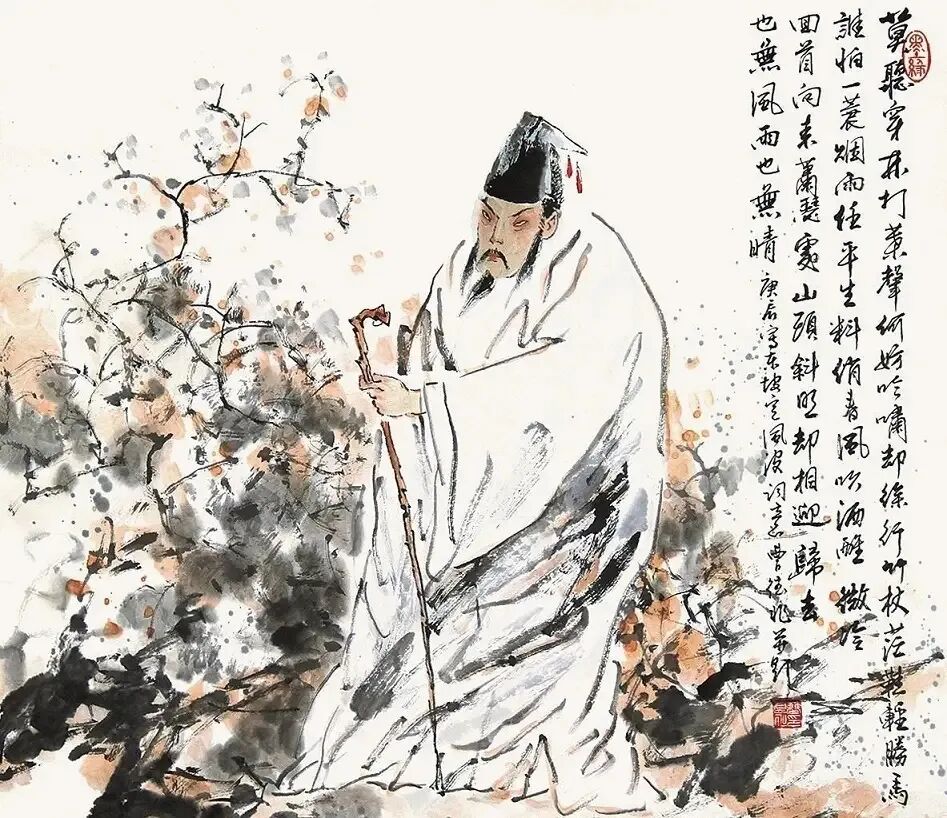 莫聽穿林打葉聲何妨吟嘯却徐行竹杖芒鞋輕勝馬
誰怕一蓑烟雨任平生料峭春風吹酒醒微冷
回首向來蕭瑟處山頭斜照却相迎歸去
也無風雨也無晴 庚辰寫東坡定風波詞意曹
墨緣